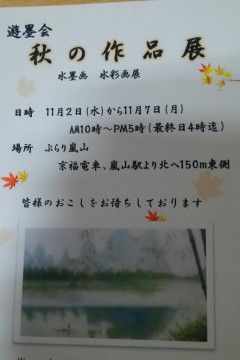 遊墨会
秋の作品展
水墨画 水彩画展
日時 11月2日(水)から11月7日(月)
AM10時～PM5時(最終日4時迄)
場所 ぶらり嵐山
京福電車、嵐山駅より北へ150m東側
皆様のおこしをお待ちしております